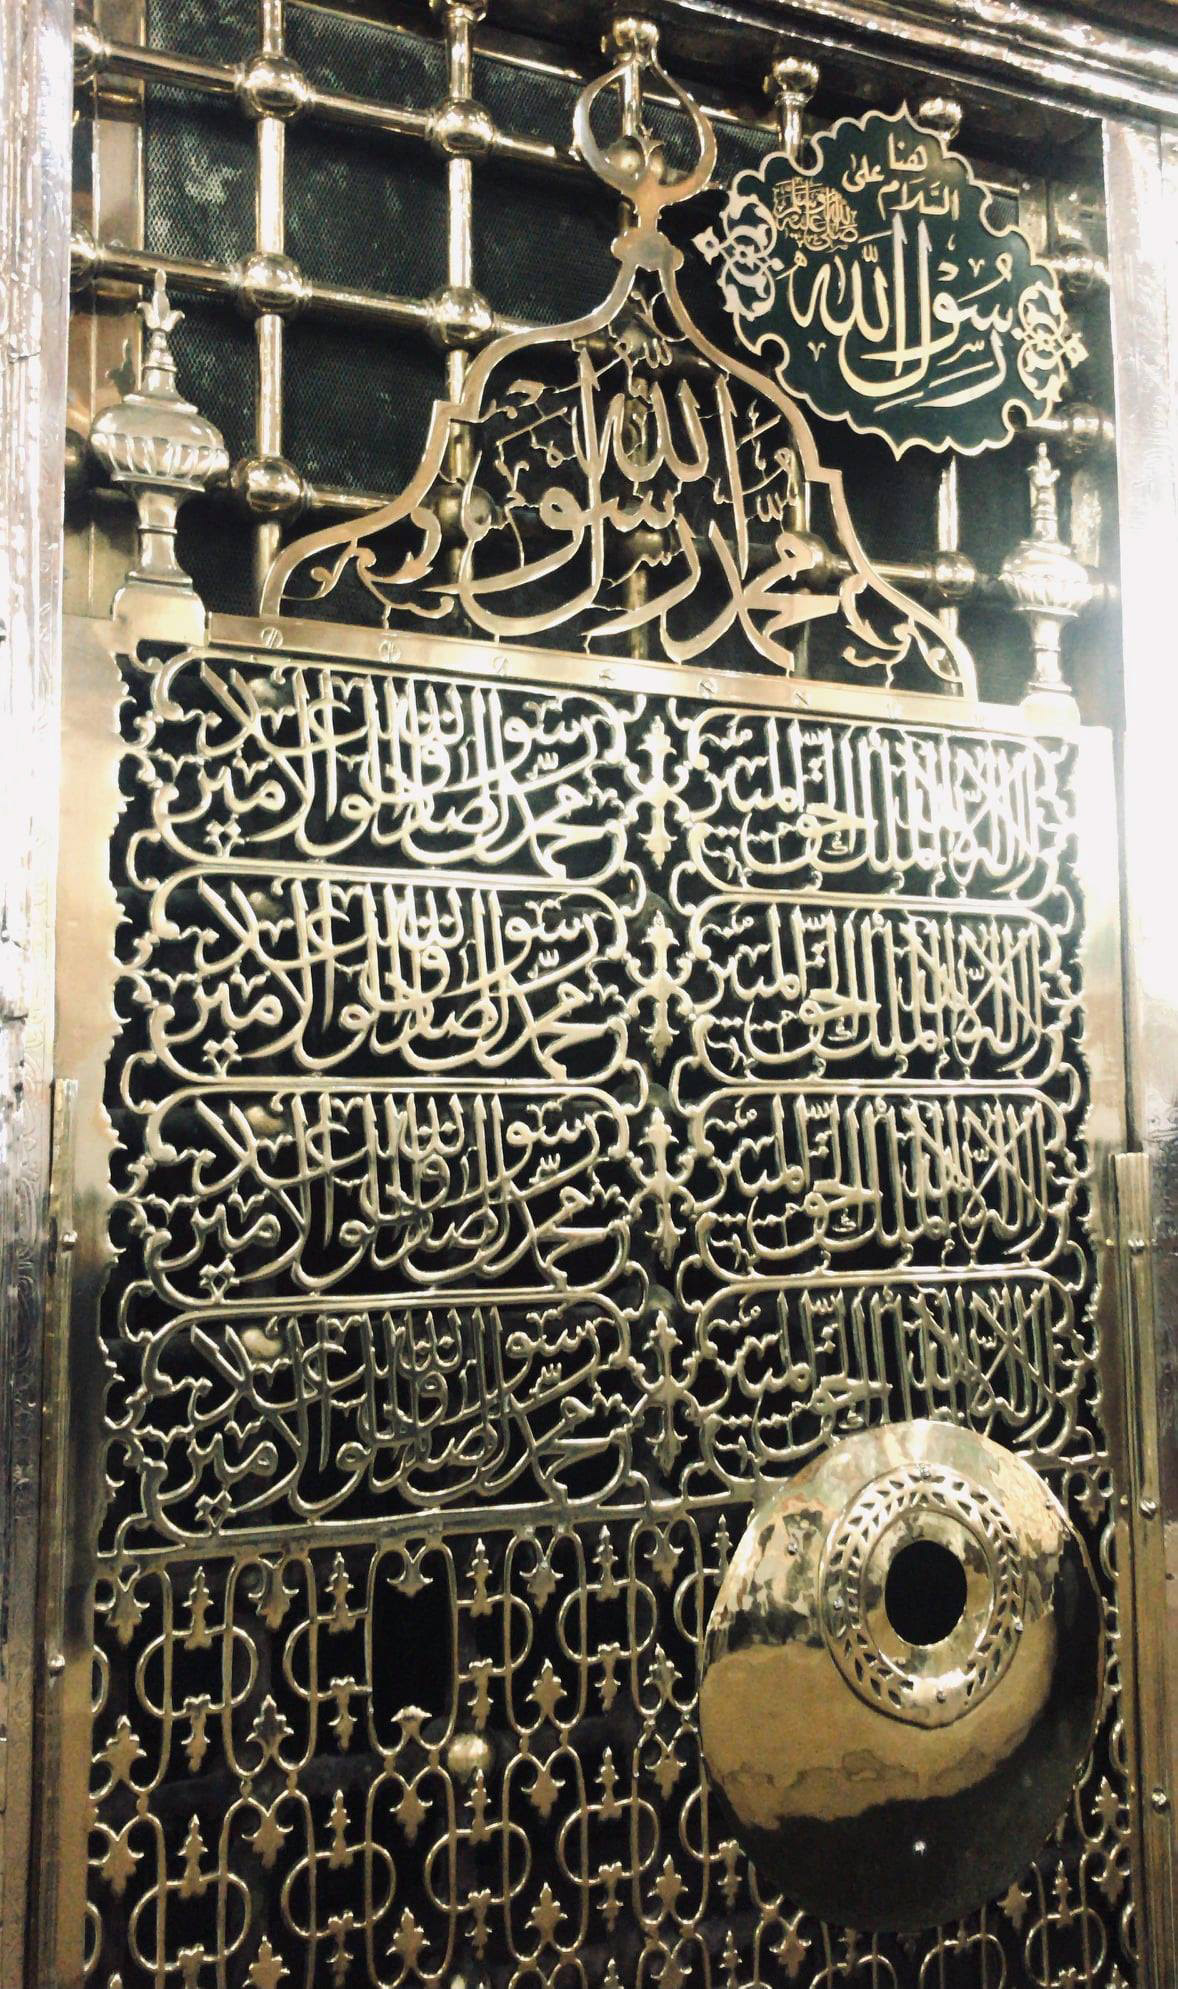 هنا
السَّلَام على
رَسُوْل الله صلى الله عليه وسلم
محمد رسول الله
لا إله إلا الله الملك الحق المبين
محمد رسول الله الصادق الوعد الأمين
لا إله إلا الله الملك الحق المبين
محمد رسول الله الصادق الوعد الأمين
لا إله إلا الله الملك الحق المبين
محمد رسول الله الصادق الوعد الأمين
لا إله إلا الله الملك الحق المبين
محمد رسول الله الصادق الوعد الأمين